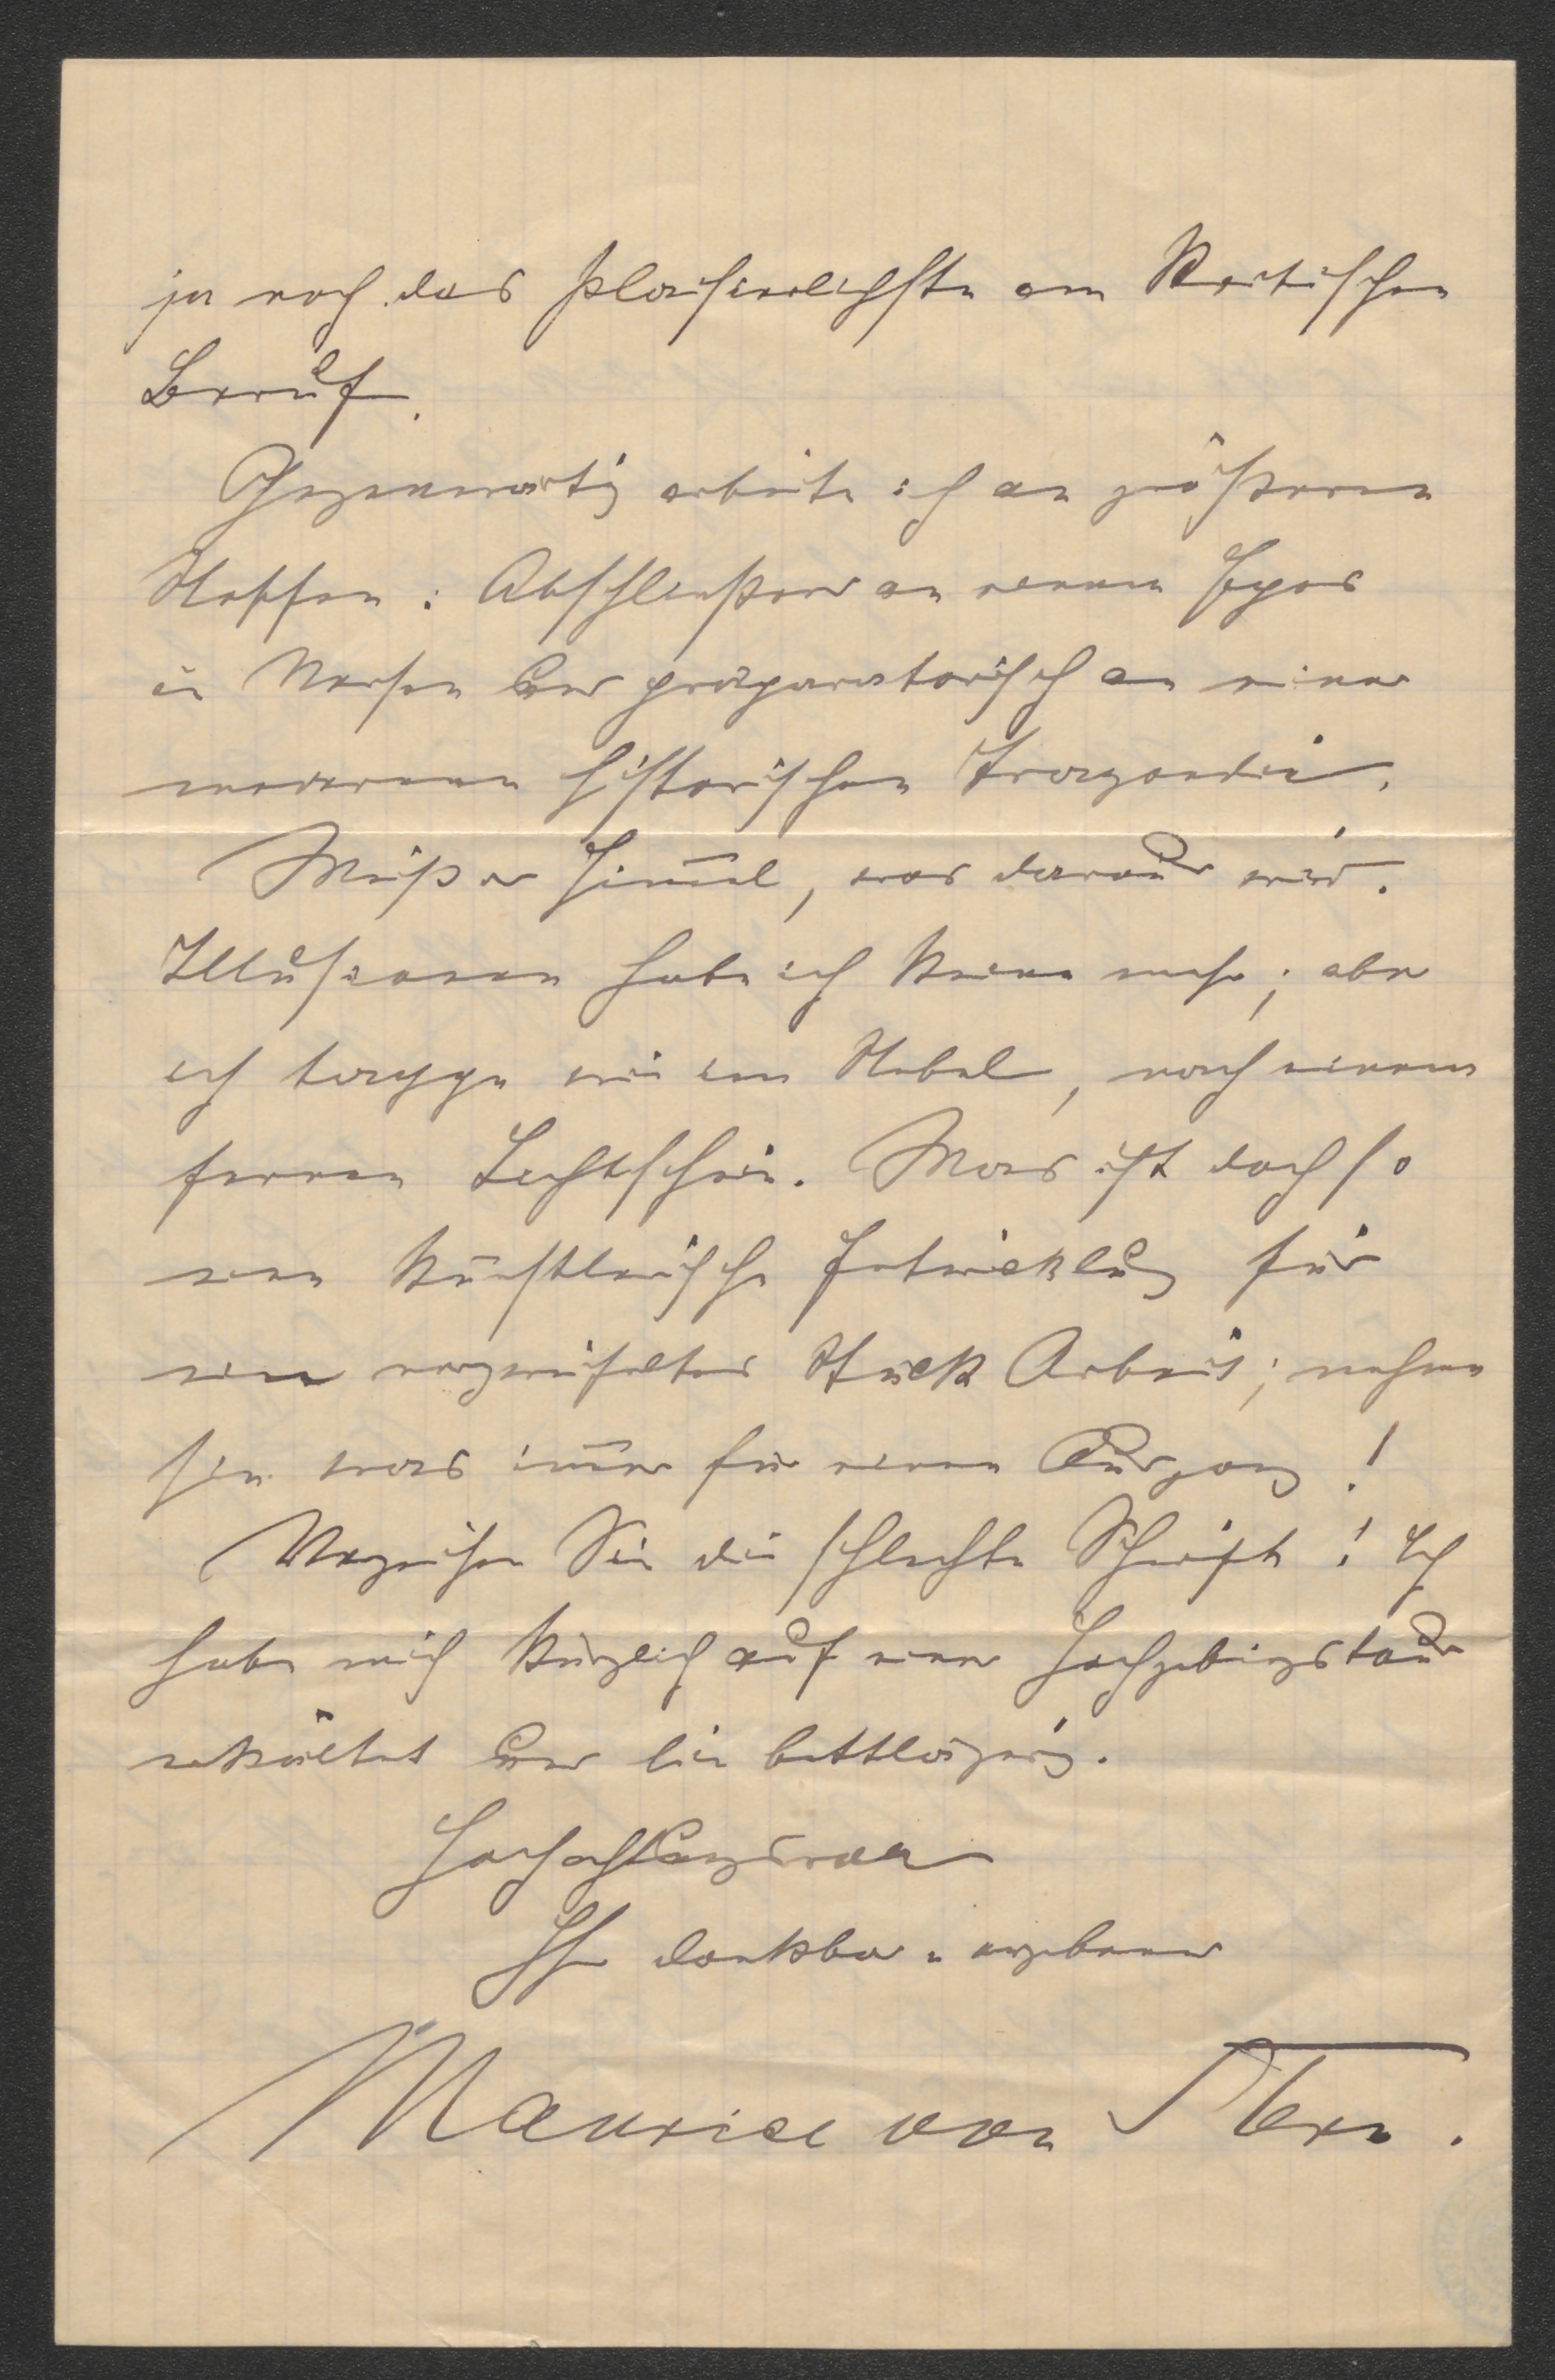 ja noch das plaisierlichste am kritischen
Beruf.
Gegenwärtig arbeite ich an größeren
Stoffen: Abschließend an einem Epos
in Versen und präparatorisch an einer
modernen historischen Tragoedie.
Weiß der Himmel, was daraus wird.
Illusionen habe ich keine mehr; aber
ich tappe wie im Nebel, nach einem
fernen Lichtschein. Was ist doch so
eine künstlerische Entwicklung für
ein verzweifeltes Stück Arbeit; nehme
sie was immer für einen Ausgang!
Verzeihen Sie die schlechte Schrift! Ich
habe mich kürzlich auf einer Hochgebirgstour
erkältet und bin bettlägerig.
Hochachtungsvoll
Ihr dankbar u ergebener
Maurice von Stern.